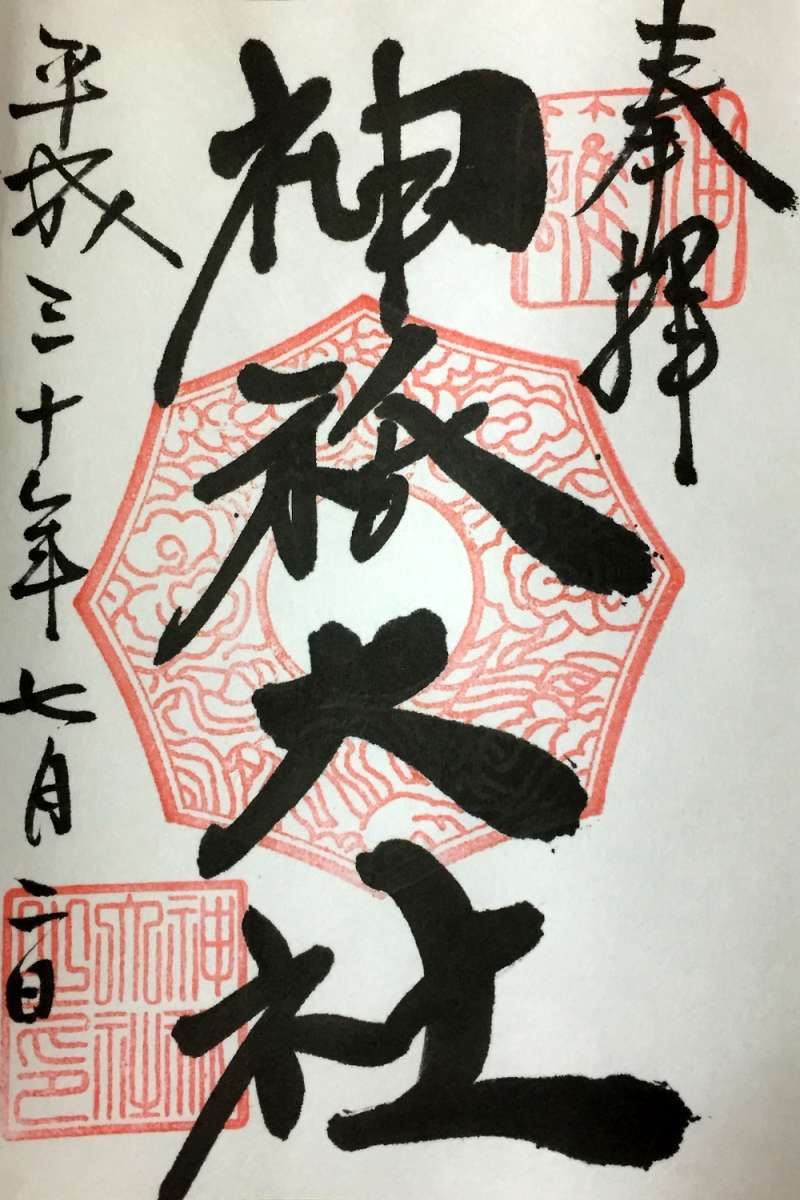 奉拝
神祇大社
平成三十年七月二日